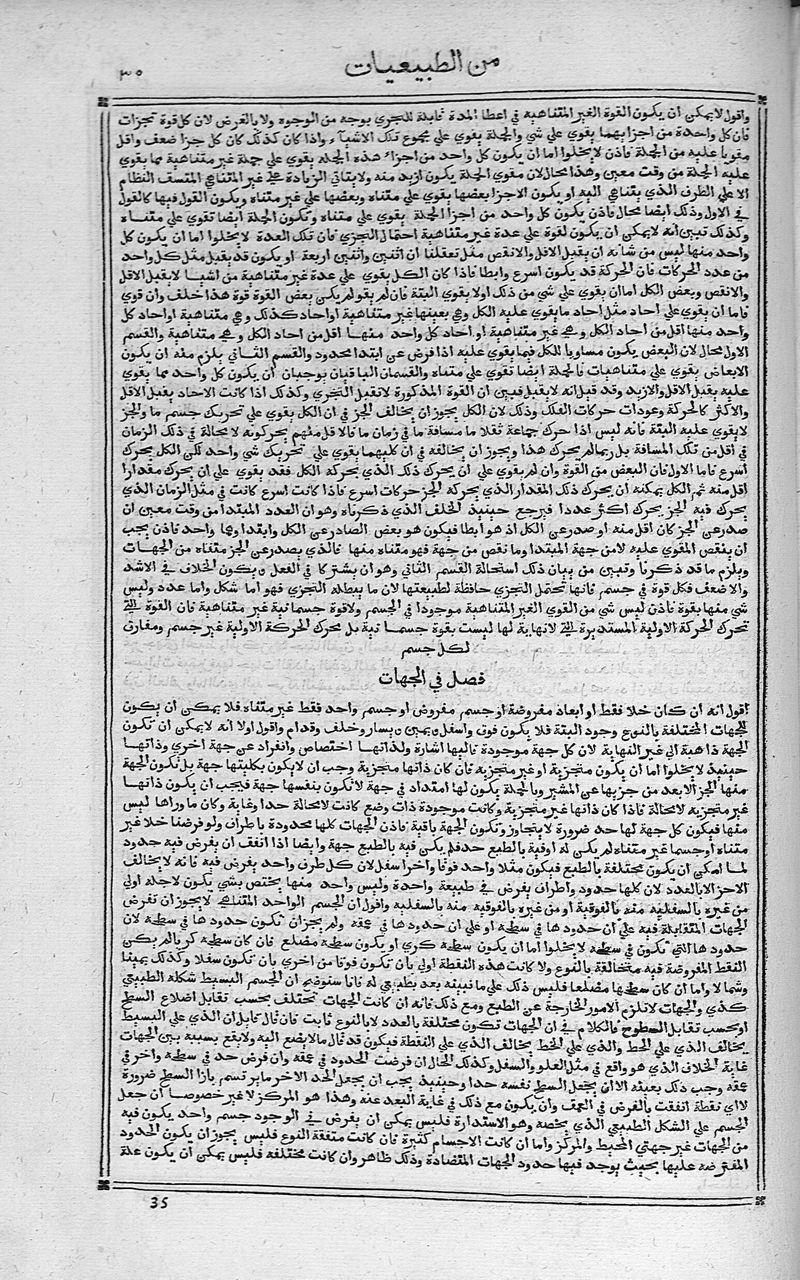 من الطبيعيات
٣٥
واقول لا يمكن ان يكون القوة الغير المتناهية في اعطا المدة قابلة للتجزي بوجه من الوجوه ولا بالعرض لان كل قوة تجزات
فان كل واحدة من اجزايهما يقوي علي شي والجملة يقوي علي مجموع تلك الاشيآء واذا كان كذلك كان كل جزا ضعف واقل
مقويا عليه من الجملة فاذن لا يخلوا اما ان يكون كل واحد من اجزاء هذه الجملة يقوي علي جملة غير متناهية مما يقوي
عليه الجملة من وقت معين وهذا محال لان مقوي الجملة يكون ازيد منه ولا يتاتي الزيادة علي غير المتناهي المتسف النظام
الا علي الطرف الذي يتناهي اليه او يكون الاجزا بعضها يقوي علي متناه وبعضها علي غير متناه ويكون القول فيها كالقول
في الاول وذلك ايضا محال فاذن يكون كل واحد من اجزا الجملة يقوي علي متناه وتكون الجملة ايضا تقوي علي متناه
وكذلك تبين انه لا يمكن ان يكون لقوة علي عدة غير متناهية احتمال التجزي فان تلك العدة لا يخلوا اما ان يكون كل
واحد منها ليس من شانه ان يقبل الاقل والانقص مثل تعقلنا ان اثنين واثنين اربعة او يكون قد يقبل مثل كل واحد
من عدد الحركات فان الحركة قد يكون اسرع وابطا فاذا كان الكل يقوي علي عدة غير متناهية من اشيا لا يقبل الاقل
والانقص وبعض الكل اما ان يقوي علي شي من ذلك اولا يقوي البتة فان لم يقو لم يكن بعض القوة قوة هذا خلف وان قوي
فاما ان يقوي علي احاد مثل احاد ما يقوي عليه الكل وهي بعينها غير متناهية او احاد كذلك وهي متناهية او احاد كل
واحد منها اقل من احاد الكل وهي غير متناهية او احاد كل واحد منهما اقل من احاد الكل وهي متناهية والقسم
الاول محال لان البعض يكون مساويا للكل فيما يقوي عليه اذا فرض عن ابتدا محدود والقسم الثاني يلزم منه ان يكون
الابعاض يقوي علي متناهيات فالجملة ايضا تقوي علي متناه والقسمان الباقيان يوجبان ان يكون كل واحد مما يقوي
عليه يقبل الاقل والازيد وقد قيل انه لا يقبل فبين ان القوة المذكورة لا تقبل التجزي وكذلك اذا كانت الاحاد يقبل الاقل
والاكثر كالحركة وعودات حركات الفلك وذلك لان الكل يجوز ان يخالف الجز في ان الكل يقوي علي تحريك جسم ما والجز
لا يقوي عليه البتة فانه ليس اذا حرك جماعة ثقلا ما مسافة ما في زمان ما فالاقل منهم يحركونه لا محالة في ذلك الزمان
في اقل من تلك المسافة بل ربما لم يحرك هذا ويجوز ان يخالفه في ان كليهما يقوي علي تحريك شي واحد لكن الكل يحرك
اسرع فاما الاول فان البعض من القوة وان لم يقوي علي ان يحرك ذلك الذي يحركه الكل فقد يقوي علي ان يحرك مقدارا
اقل منه ثم الكل يمكنه ان يحرك ذلك المقدار الذي يحركه الجز حركات اسرع فاذا كانت اسرع كانت في مثل الزمان الذي
يحرك فيه الجز يحرك اكثر عددا فيرجع حينيذ الخلف الذي ذكرناه وهو ان العدد المبتدا من وقت معين ان
صدر عن الجز كان اقل منه او صدر عن الكل اذ هو ابطا فيكون هو بعض الصادر عن الكل وابتداوهما واحد فاذن يجب
ان ينقص المقوي عليه لا من جهة المبتدا وما نقص من جهة فهو متناه منها فالذي يصدر عن الجز متناه من الجهات
ويلزم ما قد ذكرنا وتبين من بيان ذلك استحالة القسم الثاني وهو ان يشتركا في الفعل ن يكون الخلاف في الاشد
والاضعف فكل قوة في جسم فانها تحتمل التجزي حافظة لطبيعتها لان ما يبطله التجزي فهو اما شكل واما عدد وليس
شي منها بقوة فاذن ليس شي من القوي الغير المتناهية موجودا في الجسم ولا قوة جسمانية غير متناهية فان القوة التي
تحرك الحركة الاولية المستديرة التي لا نهاية لها ليست بقوة جسمانية بل محرك الحركة الاولية غير جسم ومفارق
لكل جسم
فصل في الجهات
اقول انه ان كان خلا فقط او ابعاد مفروضة او جسم مفروض او جسم واحد فقط غير متناه فلا يمكن ان يكون
للجهات المختلفة بالنوع وجود البتة فلا يكون فوق واسفل ن يمين ن يسار وخلف وقدام واقول اولا انه لا يمكن ان تكون
الجهة ذاهبة الي غير النهاية لان كل جهة موجودة فاليها اشارة ولذاتها اختصاص وانفراد عن جهة اخري وذاتها
حينيذ لا يخلوا اما ان يكون متجزية او غير متجزيه فان كان ذاتها متجزية وجب ان لا يكون بكليتها جهة بل تكون الجهة
منها الجز الابعد من جزيها عن المشير وبالجملة يكون لها امتداد في جهة لا تكون بنفسها جهة فيجب ان يكون ذاتها
غير متجزيه لا محالة فاذا كان ذاتها غير متجزية وكانت موجودة ذات وضع كانت لا محالة حدا وغاية وكان ما وراها ليس
منها فيكون كل جهة لها حد ضرورة لا يتجاوز وتكون الجهة باقية فاذن الجهات كلها محدودة باطراف ولو فرضنا خلا غير
متناه او جسما غير متناه لم يكن له اوفية بالطبع حد فلم يكن فيه بالطبع جهة وايضا اذا اتفق ان يفرض فيه حدود
لما امكن ان يكون مختلفة بالطبع فيكون مثلا واحد فوقا واخر اسفل لان كل طرف واحد يفرض فيه فانه لا يخالف
الاخر الا بالعدد لان كلها حدود واطراف يفرض في طبيعة واحدة وليس واحد منها يختص بشي يكون لاجله اولي
من غيره بالسفلية منه بالفوقية او من غيره بالفوقيه منه بالسفليه واقول ان الجسم الواحد المتناهي لا يجوز ان تفرض
الجهات المتقابلة فيه علي ان حدودها في سطحه او علي ان حدودها في عمقه ولم يجز ان تكون حدودها في سطحه لان
حدودها التي تكون في سطحه لا يخلوا اما ان يكون سطحه كري او يكون سطحه مضلع فان كان سطحه كريا لم يكن
النقط المفروضة فيه متخالفة بالنوع ولا كانت هذه النقطة اولي بان تكون فوقا من اخري بان تكون سفلا وكذلك يمينا
وشمالا واما ان كان سطحها مضلعا فليس ذلك علي ما نبينه بعد بطبيعي له فانا سنوضح ان الجسم البسيط شكله الطبيعي
كذي والجهات لا تلزم الامور الخارجة عن الطبع ومع ذلك فانه ان كانت الجهات تختلف بحسب تقابل اضلاع السطح
او بحسب تقابل السطوح فالكلام في ان الجهات تكون مختلفة بالعدد لا بالنوع ثابت فان قال قايل ان الذي علي البسيط
يخالف الذي علي الخط والذي علي الخط يخالف الذي علي النقطة فيكون قد قال ما لا يصغ اليه ولا يقع بسببه بين الجهات
غاية الخلاف الذي هو واقع في مثل العلو والسفل وكذلك الحال ان فرضت الحدود في عمقه وان فرض حد في سطحه واخر في
عمقه وجب ذلك بعينه الا ان يجعل السطح نفسه حدا وحينيذ يجب ان يجعل الحد الاخر ما يرتسم بازا السطح ضرورة
لا اي نقطة اتفقت بالفرض في العمق وان يكون مع ذلك في غاية البعد عنه وهذا هو المركز لا غير خصوصا ان جعل
الجسم علي الشكل الطبيعي الذي يخصه وهو الاستدارة فليس يمكن ان يفرض في الوجود جسم واحد يكون فيه
من الجهات غير جهتي المحيط والمركز واما ان كانت الاجسام كثيرة فان كانت متفقة النوع فليس يجوز ان يكون الحدود
المفترضه عليها بحيث يوجد فيها حدود الجهات المتضادة وذلك ظاهر وان كانت مختلفه فليس يمكن ان يكون علة
35